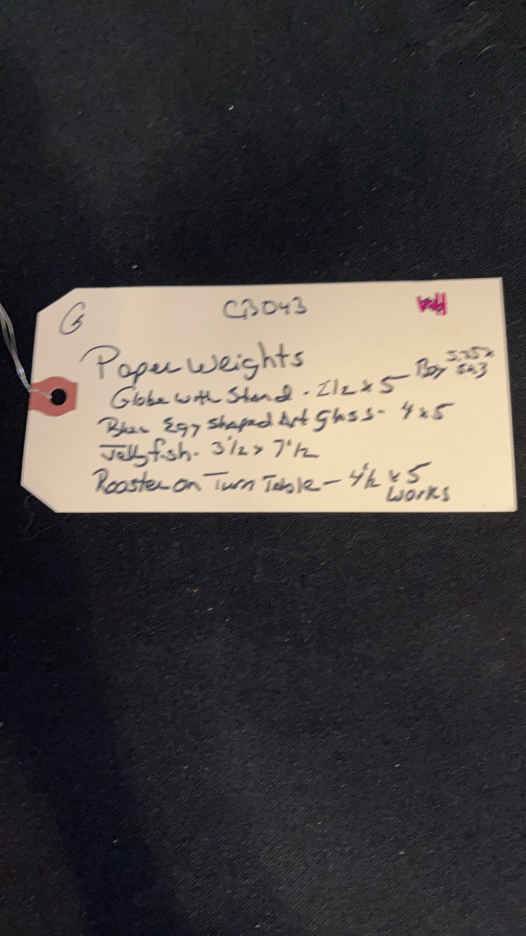 G CB043
Paper Weights
Globe with Stand - 2 1/2 x 5
Blue Egg shaped Art glass - 4 x 5
Jellyfish - 3 1/2 x 7 1/2
Rooster on Turn Table - 4 1/2 x 5
works